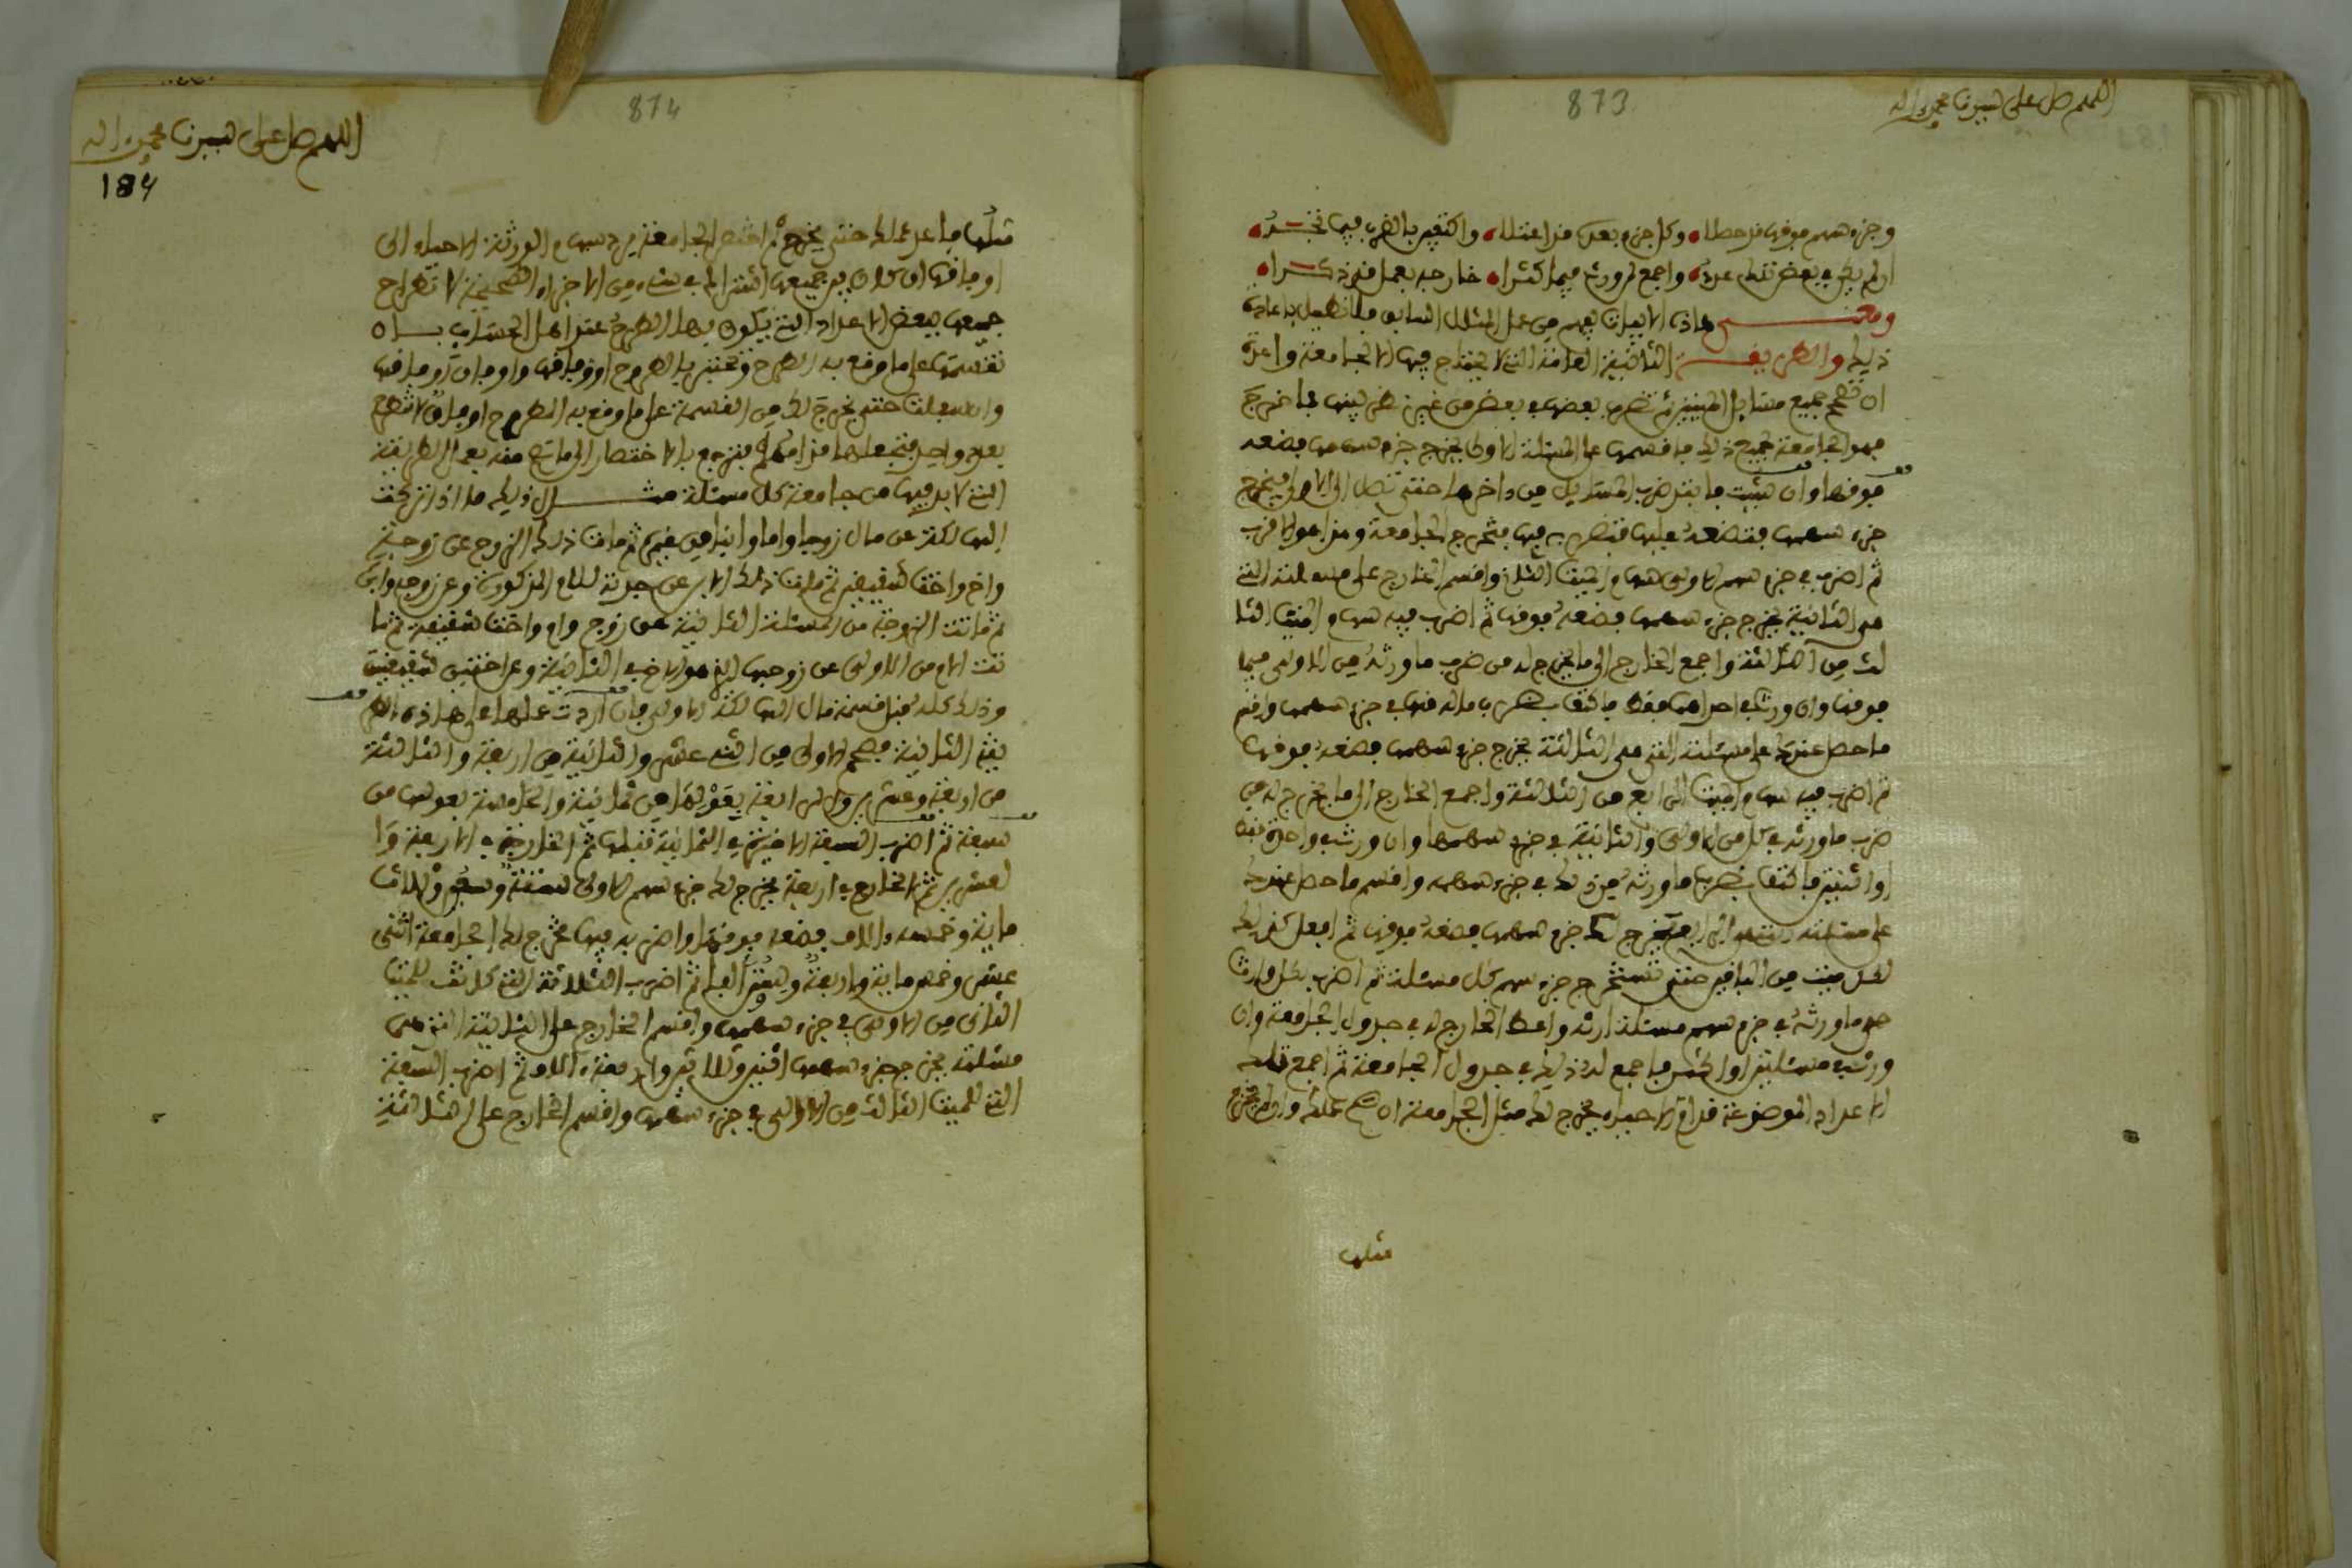 اللهم صل على سيدنا محمد واله
873
وجزء سهم فوقها قد حطلا وكل جزء بعد قد اعتلا واكتفين بالضرب فيها تخبره
ان لم يكن في بعض تلك عده واجمع لوارث فيما كثرا خارجه بعمل قد ذكرا
ومعنى هاذه الابيات يفهم من عمل المثال السابق فلا نطيل باعادة
ذلك والطريقة الثانية العامة التي لا يحتاج فيها الا لجامعة واحدة
ان تصحح جميع مسايل الميتين ثم تضرب بعضها في بعض من غير نظر بينها فما خرج
فهو الجامعة لجميع ذلك فاقسمها على المسئلة الاولى يخرج جزء سهمها فضعه
فوقها وان شئت فابتد ضرب المسايل من داخرها حتى تصل الى الاولى فيخرج
جزء سهمها فتضعه عليها فتضربه فيها فتخرج الجامعة وهذا هو الاقرب
ثم اضرب في جزء سهم الاولى سهام الميت الثاني واقسم الخارج على مسئلته التي
هي الثانية يخرج جزء سهمها فضعه فوقها ثم اضرب فيه سهام الميت الثا
لث من الثانية واجمع الخارج الى ما يخرج له من ضرب ما ورثه من الاولى فيما
فوقها وان ورث في احداهما فقط فاكتف بضرب ماله فيها في جزء سهمها واقسم
ما حصل عندك على مسئلته التي هي الثالثة يخرج جزء سهمها فضعه فوقها
ثم اضرب فيه سهام الميت الرابع من الثالثة واجمع الخارج الى ما يخرج له من
ضرب ما ورثه في كل من الاولى والثانية في جزء سهمها وان ورث في واحدة فقط
او اثنتين فاكتف بضرب ما ورثه من ذلك في جزء سهمه واقسم ما حصل عندك
على مسئلته الرابعة يخرج لك جزء سهمها فضعه فوقها ثم افعل كذلك
لكل ميت من الباقين حتى تستخرج جزء سهم كل مسئلة ثم اضرب لكل وارث
حي ما ورثه في جزء سهم مسئلة ارثه واعط الخارج له في جدول الجامعة وان
ورث في مسئلتين او اكثر فاجمع له ذلك في جدول الجامعة ثم اجمع تلك
الاعداد الموضوعة قدام الاحياء يخرج لك مثل الجامعة ان صح عملك وان لم يخرج
مثلها
874
اللهم صل على سيدنا محمد واله
184
مثلها فاعد عملك حتى يخرج ثم اختصر الجامعة برد سهام الورثة الاحياء الى
اوفاقها ان كان بين جميعها اشتراك في شيء من الاجزاء الصحيحة لا تطراح
جميعها ببعض الاعداد التي يكون بها الطرح عند اهل الحساب بان
تقسمها على ما وقع به الطرح وتختبر بالطرح اوفاقها واوفاق اوفاقها
وان سفلت حتى يخرج لك من القسمة على ما وقع به الطرح اوفاق لا تطرح
بعدد واحد فتجعلها قدامهم فترجع بالاختصار الى ما تصح منه بعمل الطريقة
التي لا بد فيها من جامعة كل مسئلة مثال ذلك ما اذا تركت
الهالكة عن مال زوجا واما وابنا من غيره ثم مات ذلك الزوج عن زوجة
واخ واخت شقيقين ثم مات ذلك الابن عن جدته للام المذكورة وعن زوجة وابن
ثم ماتت الزوجة من المسئلة الثانية عن زوج وام واخت شقيقة ثم ما
تت الام من الاولى عن زوجها الذي هو الاخ في الثانية وعن اختين شقيقتين
وذلك كله قبل قسمة مال الهالكة الاولى فان اردت عملها على هاذه الطر
يقة الثانية فصحح الاولى من اثني عشر والثانية من اربعة والثالثة
من اربعة وعشرين والرابعة بعولها من ثمانية والخامسة بعولها من
سبعة ثم اضرب السبعة الاخيرة في الثمانية قبلها ثم الخارج في الاربعة وا
لعشرين ثم الخارج في اربعة يخرج لك جزء سهم الاولى ستة وسبعون وثلاث
ماية وخمسة ءالاف فضعه فوقها واضربه فيها تخرج لك الجامعة اثنى
عشر وخمس ماية واربعة وستين الفا ثم اضرب الثلاثة التي كانت للميت
الثاني من الاولى في جزء سهمها واقسم الخارج على الثانية التي هي
مسئلته يخرج جزء سهمها اثنين وثلاثين واربعة ءالاف ثم اضرب السبعة
التي للميت الثالث من الاولى في جزء سهمها واقسم الخارج على الثالثة